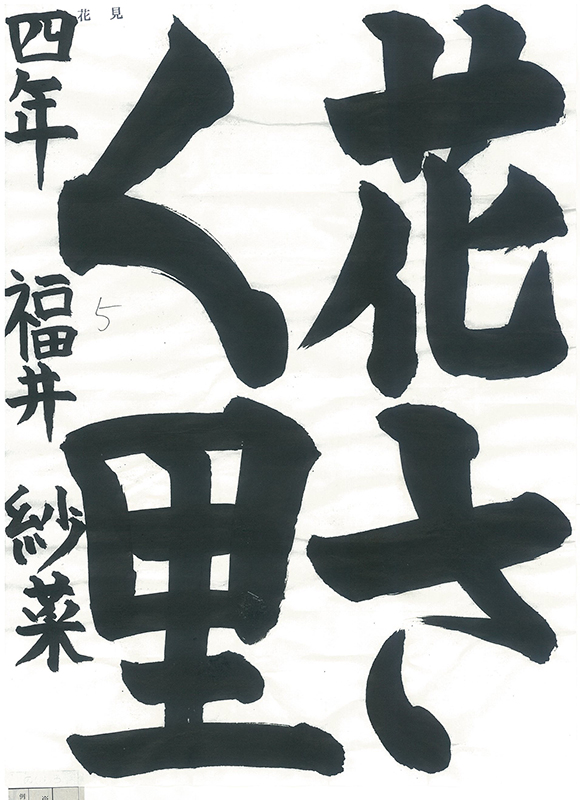 花見
花さ
く里
四年 福井 紗菜
5